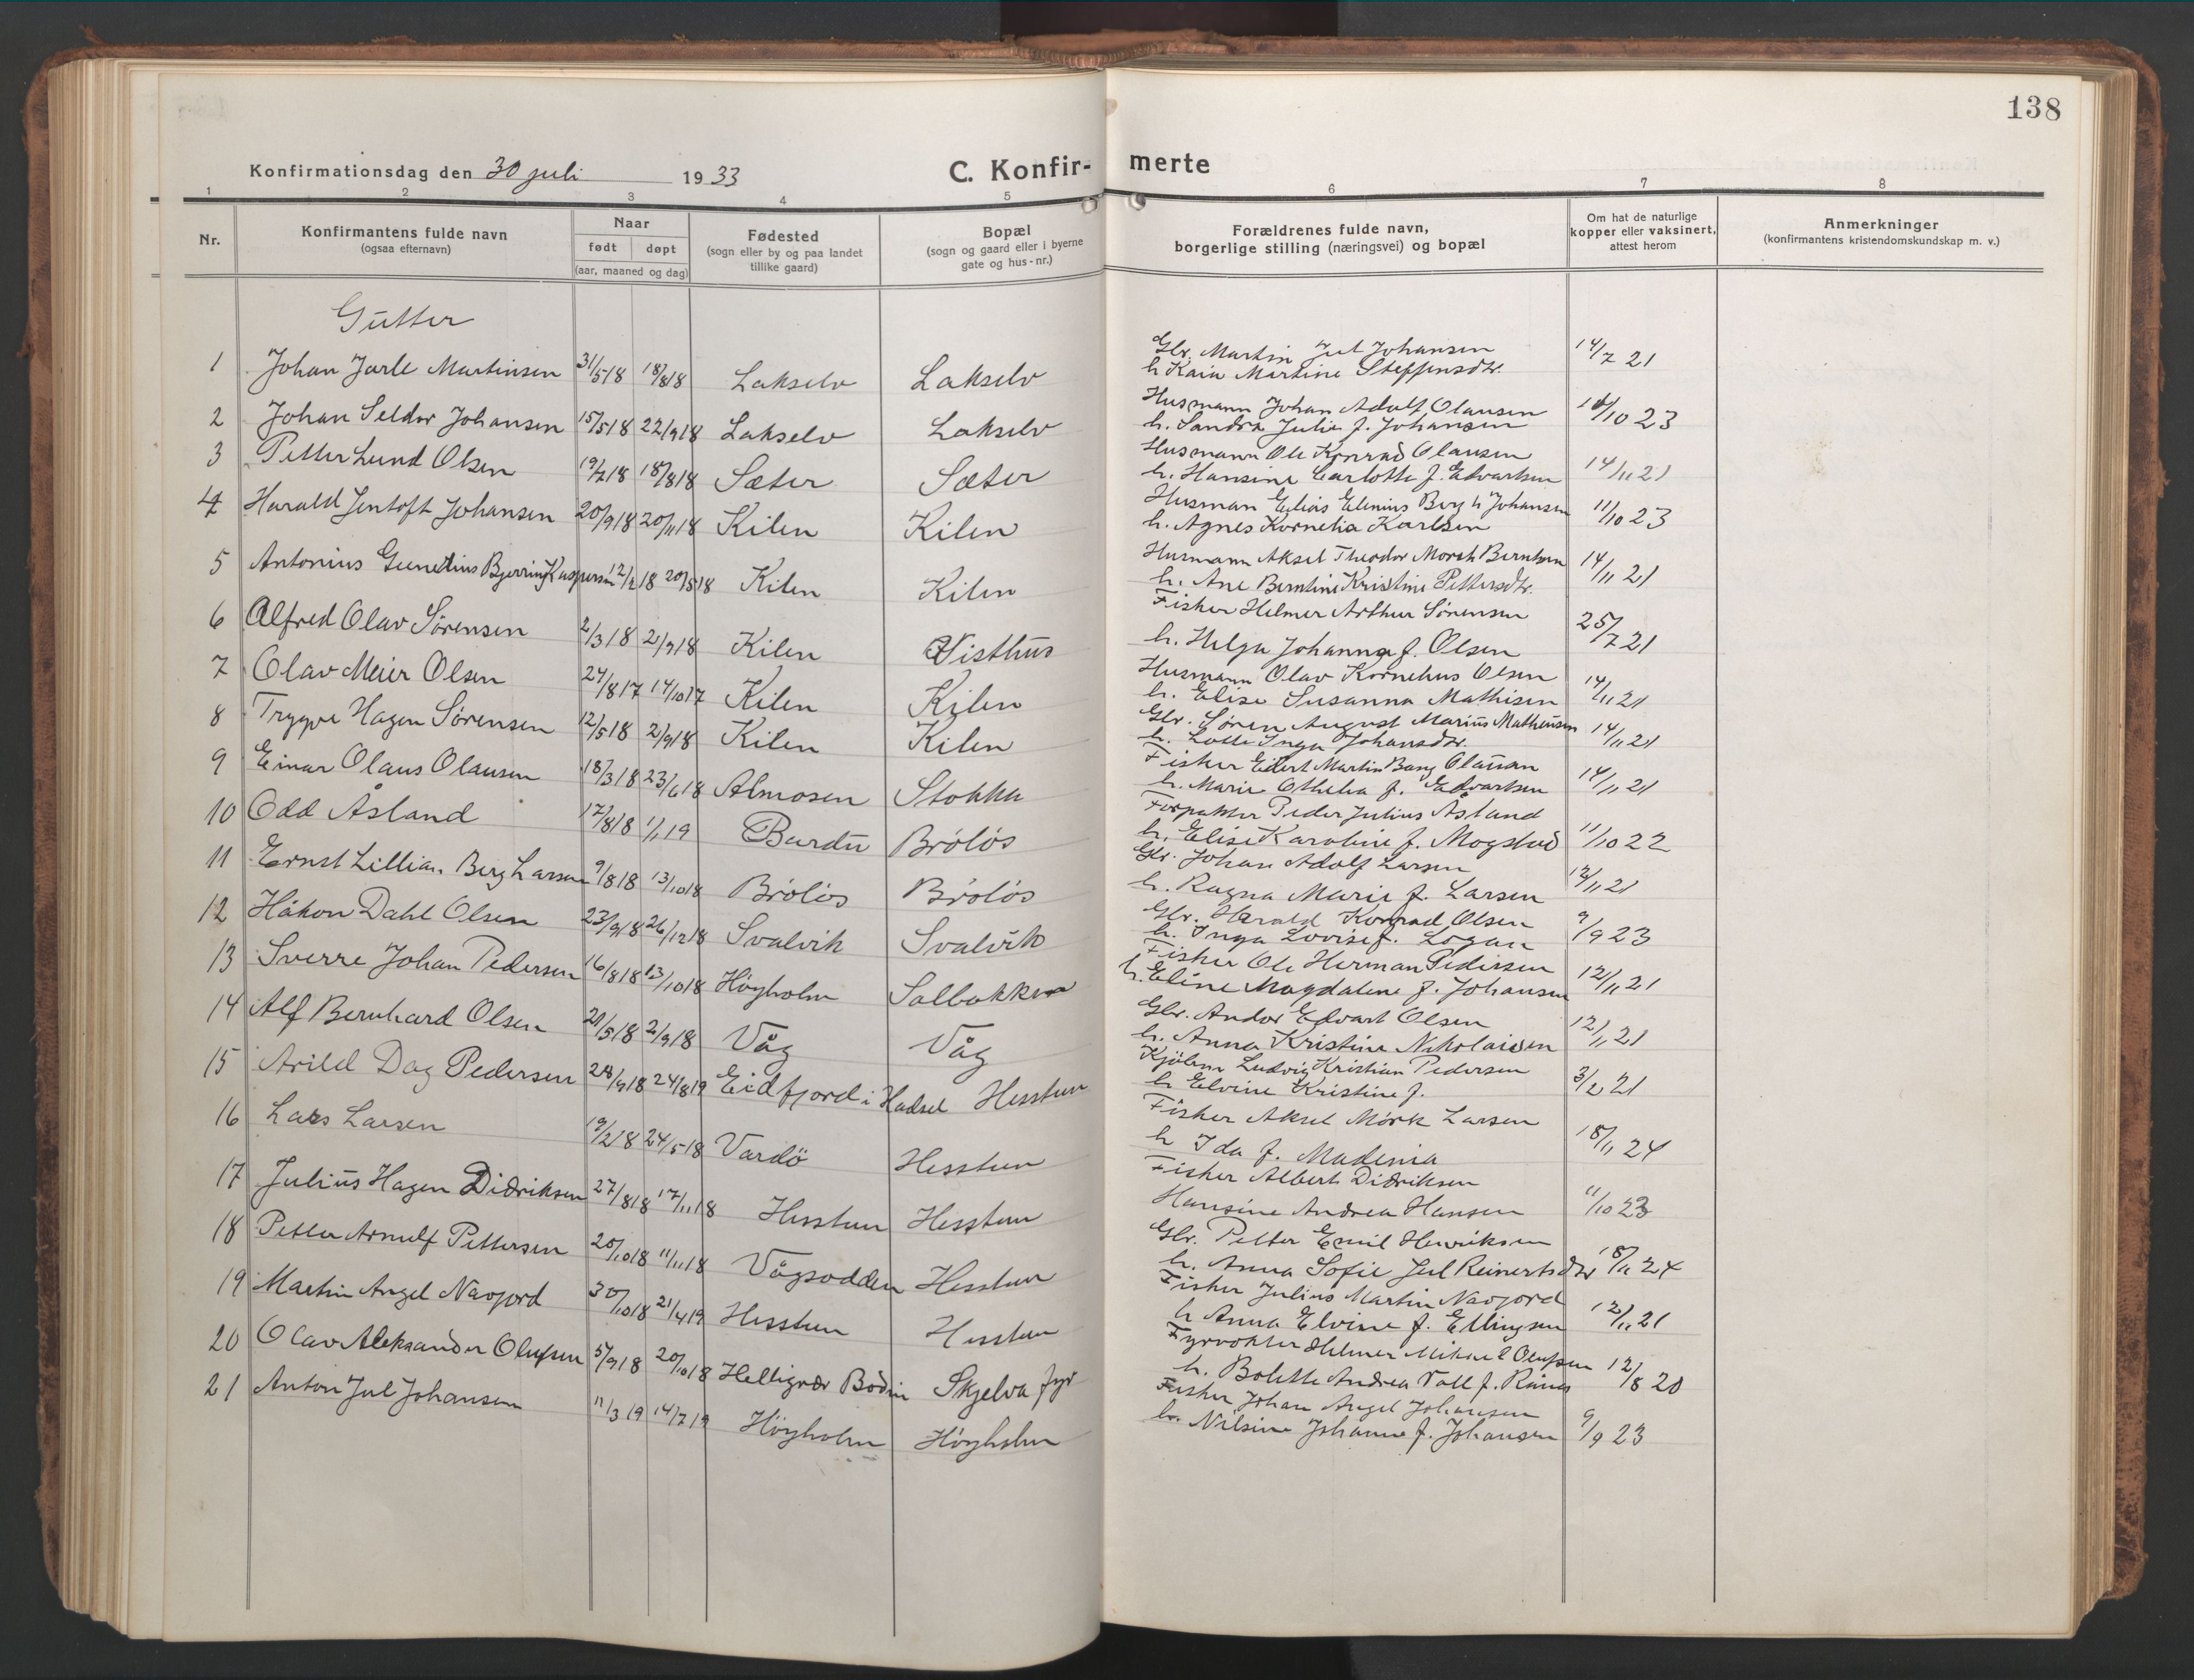 138
Konfirmationsdag den 30 juli 1933
C. Konfirmerte
1 2 3 4 5 6 7 8
Nr.
Konfirmantens fulde navn
(ogsaa efternavn)
Naar
født døpt
(aar, maaned og dag)
Fødested
(sogn eller by og paa landet
tillike gaard)
Bopæl
(sogn og gaard eller i byerne
gate og hus-nr.)
Forældrenes fulde navn,
borgerlige stilling (næringsvei) og bopæl
Om hat de naturlige
kopper eller vaksinert,
attest herom
Anmerkninger
(konfirmantens kristendomskundskap m. v.)
Gutter
1 Johan Jarle Martinsen 31/5 18 18/8 18 Lakselv Lakselv Gbr. Martin Jul Johansen 14/7 21
h Kaia Martine Steffensdtr.
2 Johan Seldor Johansen 15/5 18 22/9 18 Lakselv Lakselv Husmann Johan Adolf Olausen 10/10 23
h. Sandra Julie f. Johansen
3 Petter Lund Olsen 19/7 18 18/8 18 Sæter Sæter Husmann Ole Konrad Olausen 14/11 21
h. Hansine Carlotte f. Edvartsen
4 Harald Jentoft Johansen 20/9 18 20/11 18 Kilen Kilen Husman Elias Elenius Berg h Johansen 11/10 23
h. Agnes Kornelia Karlsen
5 Antonius Bjerring Kaspersen 12/2 18 20/5 18 Kilen Kilen Husmann Aksel Theodor Morch Berntsen 14/11 21
h. Ane Berntine Kristine Pettersdtr.
6 Alfred Olav Sörensen 2/3 18 2/9 18 Kilen Visthus Fisker Helmer Arthur Sörensen 25/7 21
h. Helga Johanna f. Olsen
7 Olav Meier Olsen 24/8 17 14/10 17 Kilen Kilen Husmann Olav Kornelius Olsen 14/11 21
h. Elise Susanna Mathisen
8 Trygve Hagen Sörensen 12/5 18 2/9 18 Kilen Kilen Gbr. Sören August Marius Matheusen 14/11 21
h. Lotte Inga Johansdtr.
9 Einar Olaus Olausen 18/3 18 23/6 18 Almosen Stokka Fisker Edert Martin Bang Olausen 14/11 21
h. Marie Othelia f. Edvartsen
10 Odd Åsland 17/8 18 1/1 19 Bardu Brölös Forpakter Peder Julius Åsland 11/10 22
h. Elise Karoline f. Mogstad
11 Ernst Lillian Berg Larsen 9/8 18 13/10 18 Brölös Brölös Gbr. Johan Adolf Larsen 12/11 21
h. Ragna Marie f. Larsen
12 Håkon Dahl Olsen 23/9 18 26/12 18 Svalvik Svalvik Gbr. Harald Konrad Olsen 9/9 23
h. Inga Lovise f. Logan
13 Sverre Johan Pedersen 16/8 18 13/10 18 Höyholm Salbakken Fisker Ole Herman Pedersen 12/11 21
h. Eline Magdalene f. Johansen
14 Alf Bernhard Olsen 21/5 18 2/9 18 Våg Våg Gbr. Andor Edvart Olsen 12/11 21
h. Anna Kristine Nikolaisen
15 Arild Dag Pedersen 28/9 18 24/8 19 Eidfjord i Hadsel Hesstun Ludvig Kristian Pedersen 3/2 21
h Elvine Kristine f.
16 Lars Larsen 19/2 18 24/5 18 Vardö Hesstun Fisker Aksel Mörk Larsen 18/11 24
h Ida f. Madenia
17 Julius Hagen Didriksen 27/8 18 17/11 18 Hesstun Hesstun Fisker Albert Didriksen 11/10 23
Hansine Andrea Hansen
18 Petter Arnulf Pettersen 20/10 18 11/11 18 Vågsodden Hesstun Gbr. Petter Emil Henriksen 18/11 24
h. Anna Sofie Jul Reinertsdtr
19 Martin Angel Navjord 30/10 18 21/4 19 Hesstun Hesstun Fisker Julius Martin Navjord 12/11 21
h Anna Elvine f. Ellingsen
20 Olav Aleksander Olufsen 5/9 18 20/10 18 Helligvær Bodin Skjelva fyr Fyrvokter Helmer Mikael Olufsen 12/8 20
h. Bolette Andrea
21 Anton Jul Johansen 11/3 19 14/7 19 Höyholm Höyholm Fisker Johan Angel Johansen 9/9 23
h. Nilsine Johanne f. Johansen